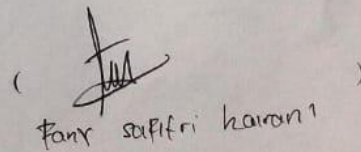 ( )
Fany safitri hairani